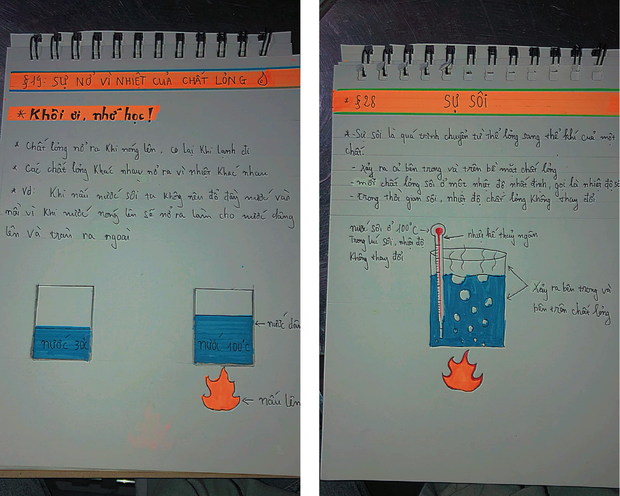 §19: SỰ NỞ VÌ NHIỆT CỦA CHẤT LỎNG
* Khôi ơi, nhớ học!
* Chất lỏng nở ra khi nóng lên, co lại khi lạnh đi
* Các chất lỏng khác nhau nở ra vì nhiệt khác nhau
* Vd: Khi nấu nước sôi ta không nên đổ đầy nước vào
nồi vì khi nước nóng lên sẽ nở ra làm cho nước dâng
lên và tràn ra ngoài
nước 30°C
nước 100°C
← nước dân
← nấu lên
§28 SỰ SÔI
* Sự sôi là quá trình chuyển từ thể lỏng sang thể khí của một
chất.
- xảy ra cả bên trong và trên bề mặt chất lỏng
- mỗi chất lỏng sôi ở một nhiệt độ nhất định, gọi là nhiệt độ sô
- trong thời gian sôi, nhiệt độ chất lỏng không thay đổi
nước sôi ở 100°C
Trong lúc sôi, nhiệt độ
không thay đổi
nhiệt kế thuỷ ngân
Xảy ra bên trong và
bên trên chất lỏng